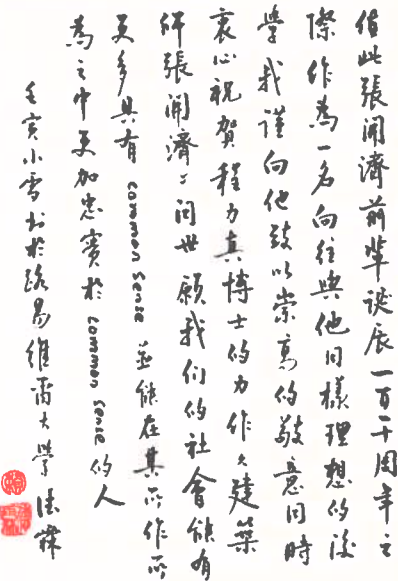 值此張開濟前輩誕辰一百一十周年之
際作為一名向往與他同樣理想的後
學我謹向他致以崇高的敬意同時
衷心祝賀程力真博士的力作《建築
師張開濟》問世願我們的社會能有
更多具有 common sense 並能在其所作所
為之中更加忠實於 common sense 的人
壬寅小雪書於路易維爾大學 德霖